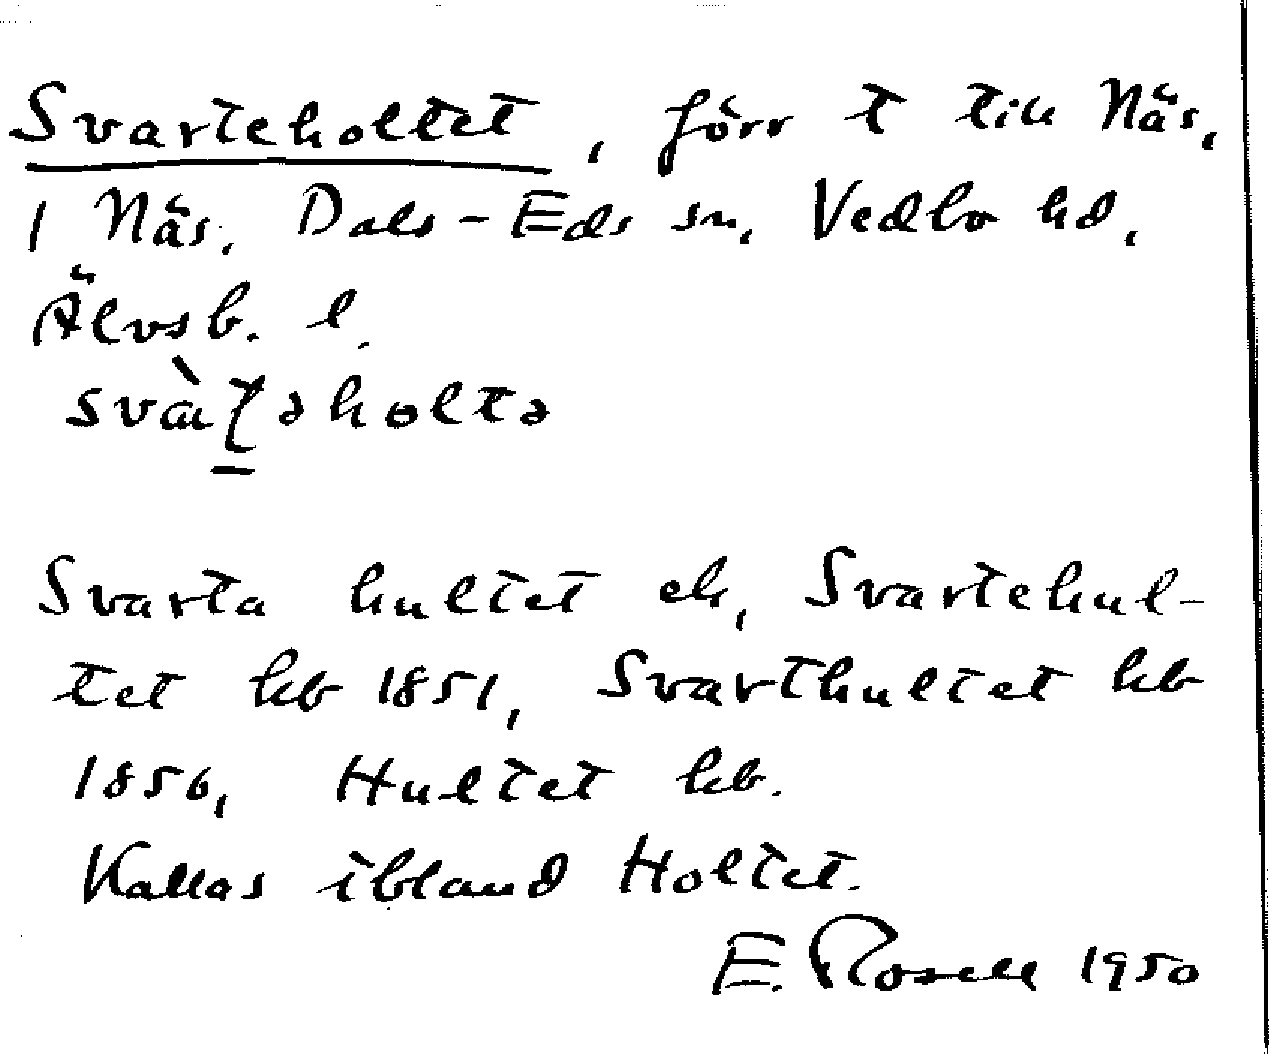 Svarteholtet, förr t till Näs,
1 Näs. Dals-Eds sn, Vedbo hd,
Älvsb. l.
Svarta hultet ek, Svartehul-
tet kb 1851, Svarthultet kb
1856, Hultet kb.
Kallas ibland Holtet.
E. Rosell 1950